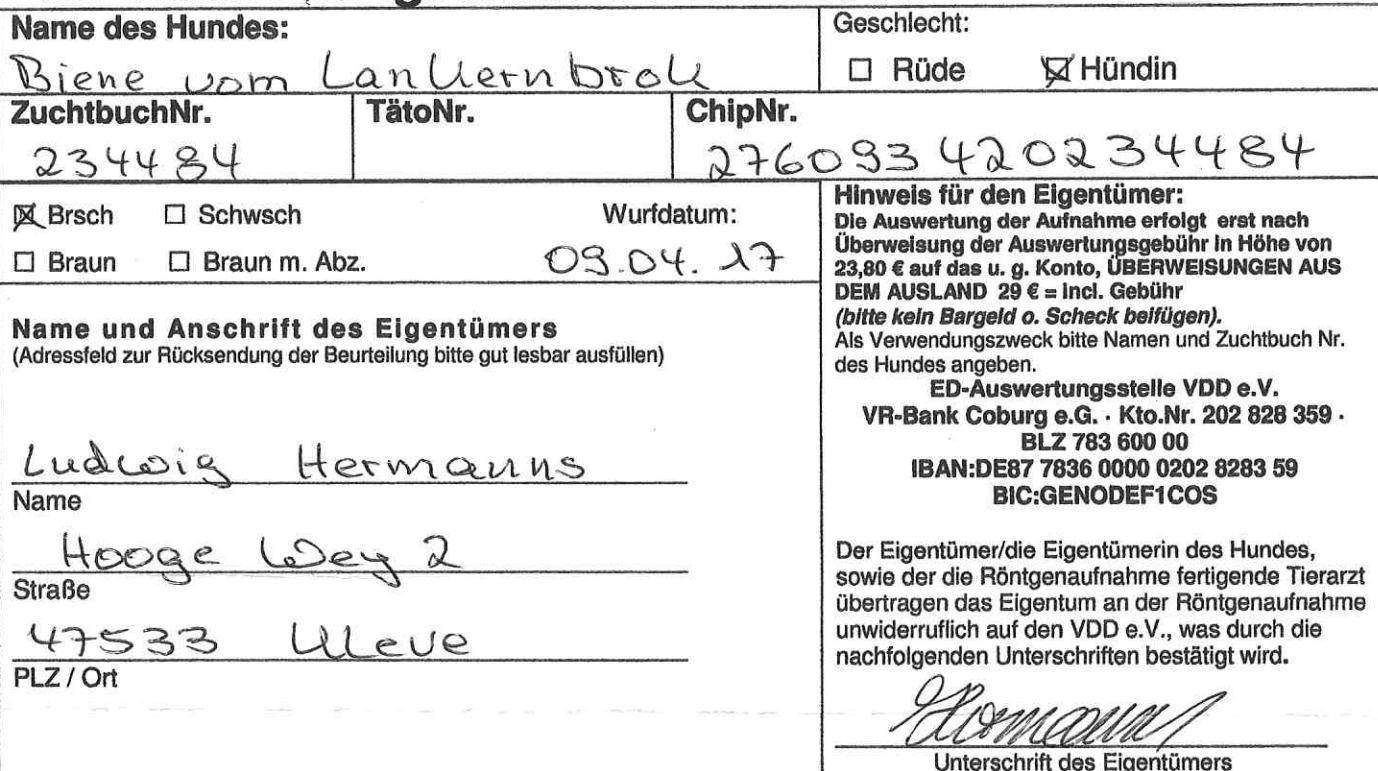 Name des Hundes:
Biene vom Lankernbrok
Geschlecht:
☐ Rüde ☒ Hündin
ZuchtbuchNr.
234484
TätoNr.
ChipNr.
276093420234484
☒ Brsch ☐ Schwsch
☐ Braun ☐ Braun m. Abz.
Wurfdatum:
09.04.17
Name und Anschrift des Eigentümers
(Adressfeld zur Rücksendung der Beurteilung bitte gut lesbar ausfüllen)
Ludwig Hermanns
Name
Hooge Wey 2
Straße
47533 Kleve
PLZ / Ort
Hinweis für den Eigentümer:
Die Auswertung der Aufnahme erfolgt erst nach
Überweisung der Auswertungsgebühr in Höhe von
23,80 € auf das u. g. Konto, ÜBERWEISUNGEN AUS
DEM AUSLAND 29 € = incl. Gebühr
(bitte kein Bargeld o. Scheck beifügen).
Als Verwendungszweck bitte Namen und Zuchtbuch Nr.
des Hundes angeben.
ED-Auswertungsstelle VDD e.V.
VR-Bank Coburg e.G. · Kto.Nr. 202 828 359 ·
BLZ 783 600 00
IBAN:DE87 7836 0000 0202 8283 59
BIC:GENODEF1COS
Der Eigentümer/die Eigentümerin des Hundes,
sowie der die Röntgenaufnahme fertigende Tierarzt
übertragen das Eigentum an der Röntgenaufnahme
unwiderruflich auf den VDD e.V., was durch die
nachfolgenden Unterschriften bestätigt wird.
Unterschrift des Eigentümers